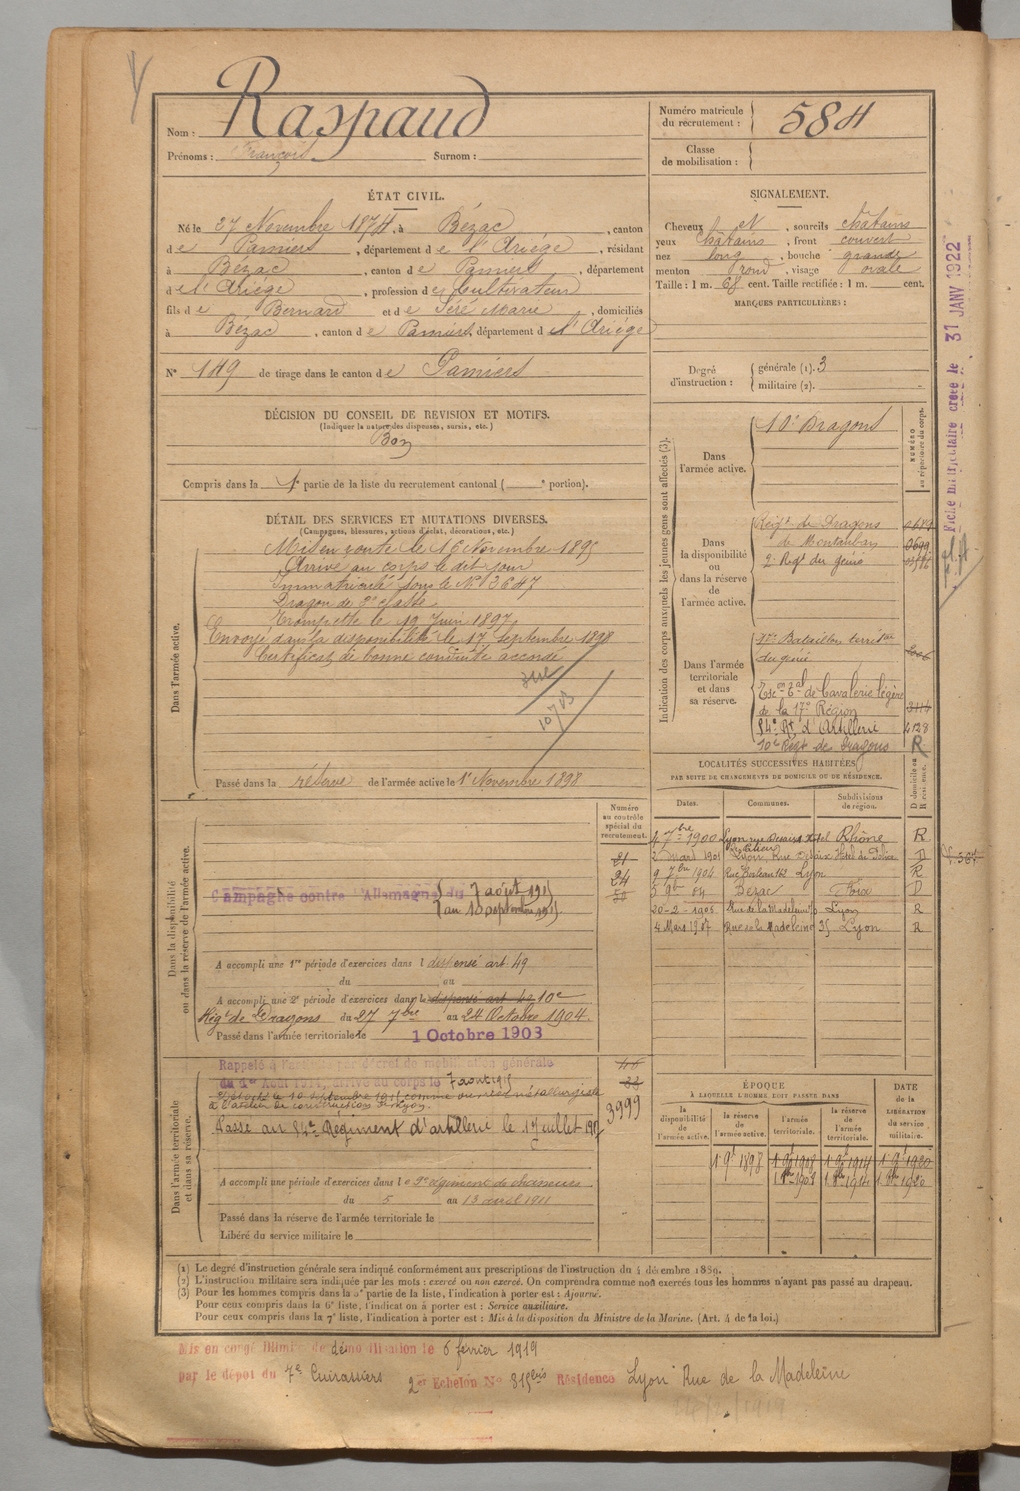 Nom : Raspaud
Prénoms : François Surnom :
Numéro matricule du recrutement : 584
Classe de mobilisation :
ÉTAT CIVIL.
Né le 27 Novembre 1874, à Bézac, canton
de Pamiers, département de l'Ariége, résidant
à Bézac, canton de Pamiers, département
de l'Ariége, profession de Cultivateur
fils de Bernard et de Séré Marie, domiciliés
à Bézac, canton de Pamiers, département de l'Ariége
N° 149 de tirage dans le canton de Pamiers
SIGNALEMENT.
Cheveux et, sourcils châtains
yeux Châtains, front couvert
nez long, bouche grande
menton rond, visage ovale
Taille : 1 m. 68 cent. Taille rectifiée : 1 m. cent.
MARQUES PARTICULIÈRES :
Degré d'instruction : générale (1). 3
militaire (2).
DÉCISION DU CONSEIL DE REVISION ET MOTIFS.
(Indiquer la nature des dispenses, sursis, etc.)
Bon
Compris dans la 1e partie de la liste du recrutement cantonal ( e portion).
DÉTAIL DES SERVICES ET MUTATIONS DIVERSES.
(Campagnes, blessures, actions d'éclat, décorations, etc.)
Dans l'armée active.
Mis en route le 16 Novembre 1895
Arrivé au corps le dit jour
Immatriculé sous le N° 3647
Dragon de 2e classe
Trompette le 19 Juin 1897
Envoyé dans la disponibilité le 17 Septembre 1898
Certificat de bonne conduite accordé
Passé dans la réserve de l'armée active le 1er Novembre 1898
Indication des corps auxquels les jeunes gens sont affectés (3).
NUMÉRO au répertoire du corps.
Dans l'armée active.
10e Dragons
Dans la disponibilité ou dans la réserve de l'armée active.
Régt de Dragons
de Montauban 0699
2e Regt du génie
Dans l'armée territoriale et dans sa réserve.
17e Bataillon territal
du génie
Escon tal de Cavalerie légère
de la 17e Région
54e Rt d'Artillerie 4128
10e Régt de Dragons R
Fiche matriculaire créée le 31 JANV 1922
LOCALITÉS SUCCESSIVES HABITÉES
PAR SUITE DE CHANGEMENTS DE DOMICILE OU DE RÉSIDENCE.
Dates. Communes. Subdivisions de région. D domicile ou R résidence.
4 7bre 1900 Lyon Rhône R
2 Mars 1901 Lyon, Rue Hôtel de Police D
9 7bre 1904 Lyon R
Bezac Foix D
20-2-1905 Rue de la Madeleine Lyon R
4 Mars 1907 Rue de la Madeleine 35 Lyon R
Numéro au contrôle spécial du recrutement.
81
24
50
Dans la disponibilité ou dans la réserve de l'armée active.
Campagne contre l'Allemagne du 7 août 1915
au 10 septembre 1915
A accompli une 1re période d'exercices dans l dispensé art 49
du au
A accompli une 2e période d'exercices dans le dispensé art 49 10e
Régt de Dragons du 27 7bre au 24 Octobre 1904.
Passé dans l'armée territoriale le 1 Octobre 1908
Dans l'armée territoriale et dans sa réserve.
Rappelé à l'activité par décret de mobilisation générale
du 1er Août 1914, arrivé au corps le 7 août 1915
le 10 septembre 1915 comme ouvrier métallurgiste
à l'atelier de construction de Lyon.
Passé au 54e Régiment d'artillerie le 1er juillet 1917
3999
A accompli une période d'exercices dans le 9e régiment de chasseurs
du 5 au 13 avril 1911
Passé dans la réserve de l'armée territoriale le
Libéré du service militaire le
ÉPOQUE
À LAQUELLE L'HOMME DOIT PASSER DANS
DATE de la LIBÉRATION du service militaire.
la disponibilité de l'armée active. la réserve de l'armée active. l'armée territoriale. la réserve de l'armée territoriale.
1 9bre 1898 1 9bre 1908 1 9bre 1914 1 9bre 1920
1 8bre 1908 1 8bre 1914 1 8bre 1920
(1) Le degré d'instruction générale sera indiqué conformément aux prescriptions de l'instruction du 4 décembre 1889.
(2) L'instruction militaire sera indiquée par les mots : exercé ou non exercé. On comprendra comme non exercés tous les hommes n'ayant pas passé au drapeau.
(3) Pour les hommes compris dans la 5e partie de la liste, l'indication à porter est : Ajourné.
Pour ceux compris dans la 6e liste, l'indication à porter est : Service auxiliaire.
Pour ceux compris dans la 7e liste, l'indication à porter est : Mis à la disposition du Ministre de la Marine. (Art. 4 de la loi.)
Mis en congé illimité de démobilisation le 6 février 1919
par le dépôt du 7e Cuirassiers 2e Echelon N° 315 bis Résidence Lyon Rue de la Madeleine